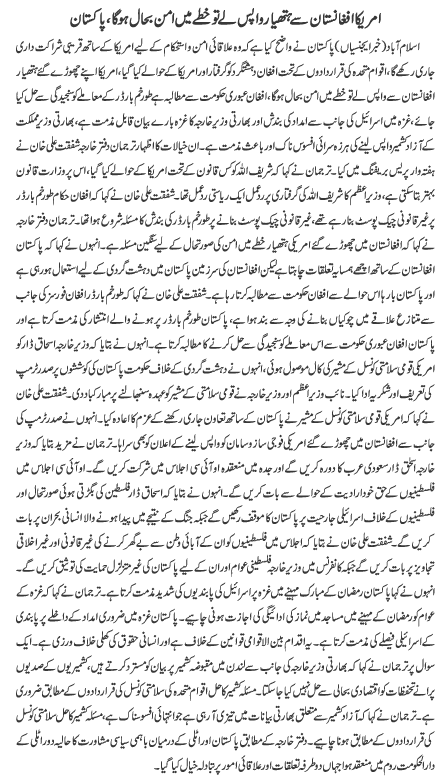 امریکا افغانستان سے ہتھیار واپس لے تو خطے میں امن بحال ہوگا، پاکستان
اسلام آباد (خبر ایجنسیاں) پاکستان نے واضح کیا ہے کہ وہ علاقائی امن و استحکام کے لیے امریکا کے ساتھ قریبی شراکت داری
جاری رکھے گا، اقوام متحدہ کی قراردادوں کے تحت افغان دہشتگرد کو گرفتار اور امریکا کے حوالے کیا گیا، امریکا اپنے چھوڑے گئے ہتھیار
افغانستان سے واپس لے تو خطے میں امن بحال ہوگا، افغان عبوری حکومت سے مطالبہ ہے طورخم بارڈر کے معاملے کو سنجیدگی سے حل کیا
جائے، غزہ میں اسرائیل کی جانب سے امداد کی بندش اور بھارتی وزیر خارجہ کا غزہ بارے بیان قابل مذمت ہے، بھارتی وزیر مملکت
کے آزاد کشمیر واپس لینے کی ہرزہ سرائی افسوس ناک اور باعث مذمت ہے۔ ان خیالات کا اظہار ترجمان دفتر خارجہ شفقت علی خان نے
ہفتہ وار پریس بریفنگ میں کیا۔ ترجمان نے کہا کہ شریف اللہ کو کس قانون کے تحت امریکا کے حوالے کیا گیا، اس پر وزارت قانون
بہتر بتا سکتی ہے، وزیر اعظم کا شریف اللہ کی گرفتاری پر ردعمل ایک ریاستی ردعمل تھا۔ شفقت علی خان نے کہا کہ افغان حکام طورخم بارڈر
پر غیر قانونی چیک پوسٹ بنا رہے تھے، غیر قانونی چیک پوسٹ بنانے پر طورخم بارڈر کی بندش کا مسئلہ شروع ہوا تھا۔ ترجمان دفتر خارجہ
نے کہا کہ افغانستان میں چھوڑے گئے امریکی ہتھیار خطے میں امن کی صورتحال کے لیے سنگین مسئلہ ہے۔ انہوں نے کہا کہ پاکستان
افغانستان کے ساتھ اچھے ہمسایہ تعلقات چاہتا ہے لیکن افغانستان کی سرزمین پاکستان میں دہشت گردی کے لیے استعمال ہو رہی ہے
اور پاکستان بارہا اس حوالے سے افغان حکومت سے مطالبہ کرتا رہا ہے۔ شفقت علی خان نے کہا کہ طورخم بارڈر افغان فورسز کی جانب
سے متنازع علاقے میں چوکیاں بنانے کی وجہ سے بند ہوا ہے، پاکستان طورخم بارڈر پر ہونے والے انتشار کی مذمت کرتا ہے اور
پاکستان افغان عبوری حکومت سے اس مسئلے کو سنجیدگی سے حل کرنے کا مطالبہ کرتا ہے۔ انہوں نے بتایا کہ وزیر خارجہ اسحاق ڈار کو
امریکی قومی سلامتی کونسل کے مشیر کی کال موصول ہوئی، انہوں نے دہشت گردی کے خلاف حکومت پاکستان کی کوششوں پر صدر ٹرمپ
کی تعریف اور شکریہ ادا کیا۔ نائب وزیر اعظم اور وزیر خارجہ نے قومی سلامتی کے مشیر کو عہدہ سنبھالنے پر مبارکباد دی۔ شفقت علی خان نے
کہا کہ امریکی قومی سلامتی کونسل کے مشیر نے پاکستان کے ساتھ تعاون جاری رکھنے کے عزم کا اعادہ کیا۔ انہوں نے صدر ٹرمپ کی
جانب سے افغانستان میں چھوڑے گئے امریکی فوجی ساز و سامان کو واپس لینے کے اعلان کو بھی سراہا۔ ترجمان نے مزید بتایا کہ وزیر
خارجہ اسحٰق ڈار سعودی عرب کا دورہ کریں گے اور جدہ میں منعقدہ او آئی سی اجلاس میں شرکت کریں گے۔ او آئی سی اجلاس میں
فلسطینیوں کے حق خودارادیت کے حوالے سے بات کریں گے۔ انہوں نے بتایا کہ اسحاق ڈار فلسطین کی بگڑتی ہوئی صورتحال اور
فلسطینیوں کے خلاف اسرائیلی جارحیت پر پاکستان کا موقف رکھیں گے جبکہ جنگ کے نتیجے میں پیدا ہونے والا انسانی بحران پر بات
کریں گے۔ شفقت علی خان نے بتایا کہ اجلاس میں فلسطینیوں کو ان کے آبائی وطن سے بے گھر کرنے کی غیر قانونی اور غیر اخلاقی
تجاویز پر بات کریں گے جبکہ کانفرنس میں وزیر خارجہ فلسطینی عوام اور ان کے لیے پاکستان کی غیر متزلزل حمایت کی توثیق کریں گے۔
انہوں نے کہا پاکستان رمضان کے مبارک مہینے میں غزہ پر اسرائیل کی پابندیوں کی شدید مذمت کرتا ہے۔ ترجمان نے کہا کہ غزہ کے
عوام کو رمضان کے مہینے میں مساجد میں نماز کی ادائیگی کی اجازت ہونی چاہیے۔ پاکستان غزہ میں ضروری امداد کے داخلے پر پابندی
کے اسرائیلی فیصلے کی مذمت کرتا ہے۔ یہ اقدام بین الاقوامی قوانین کے خلاف ہے اور انسانی حقوق کی کھلی خلاف ورزی ہے۔ ایک
سوال پر ترجمان نے کہا کہ بھارتی وزیر خارجہ کی جانب سے لندن میں مقبوضہ کشمیر پر بیان کو مسترد کرتے ہیں، کشمیریوں کے صدیوں
پرانے تحفظات کو اقتصادی بحالی سے حل نہیں کیا جا سکتا۔ مسئلہ کشمیر کا حل اقوام متحدہ کی سلامتی کی قراردادوں کے مطابق ضروری
ہے۔ ترجمان نے کہا کہ آزاد کشمیر سے متعلق بھارتی بیانات میں تیزی آ رہی ہے جو انتہائی افسوسناک ہے، مسئلہ کشمیر کا حل سلامتی کونسل
کی قراردادوں کے مطابق ہونا چاہیے۔ دفتر خارجہ کے مطابق پاکستان اور اٹلی کے درمیان باہمی سیاسی مشاورت کا حالیہ دور اٹلی کے
دارالحکومت روم میں منعقد ہوا جہاں دو طرفہ تعلقات اور علاقائی امور پر تبادلہ خیال کیا گیا۔